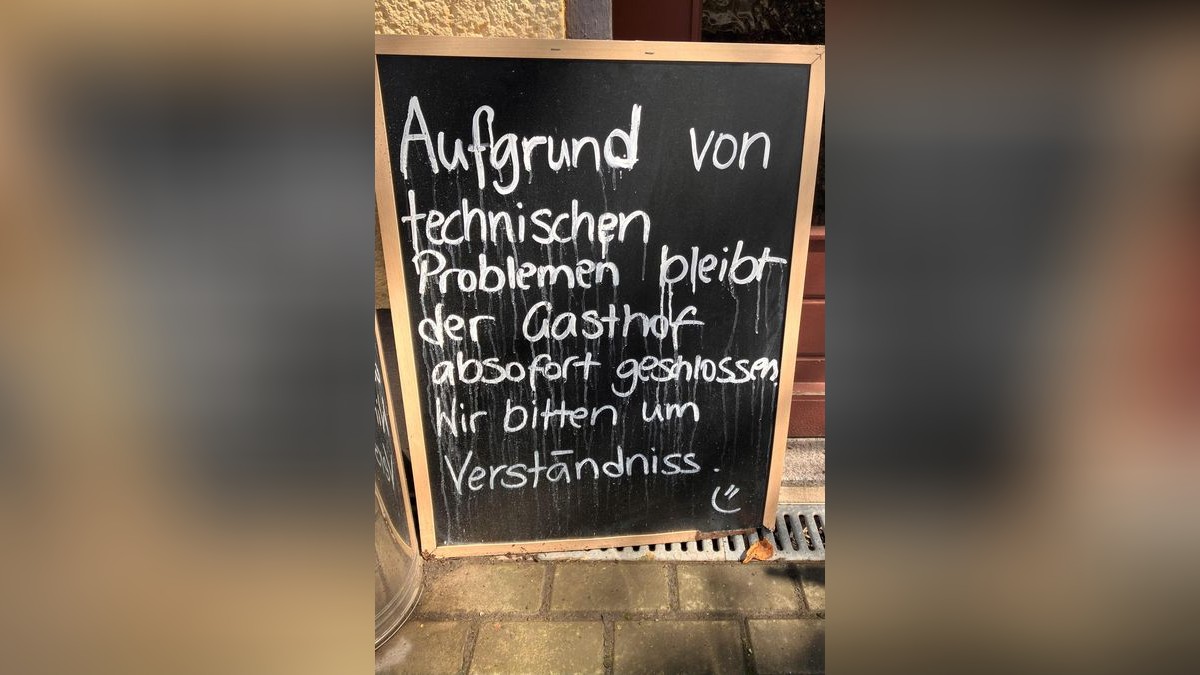 Aufgrund von
technischen
Problemen bleibt
der Gasthof
absofort geschlossen.
Wir bitten um
Verständniss.